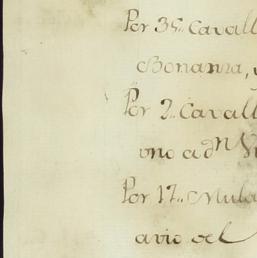 Por 35.. Cavall
Bonanza,
Por 2.. Cavall
uno a dn Vi
Por 17.. Mula
avio del